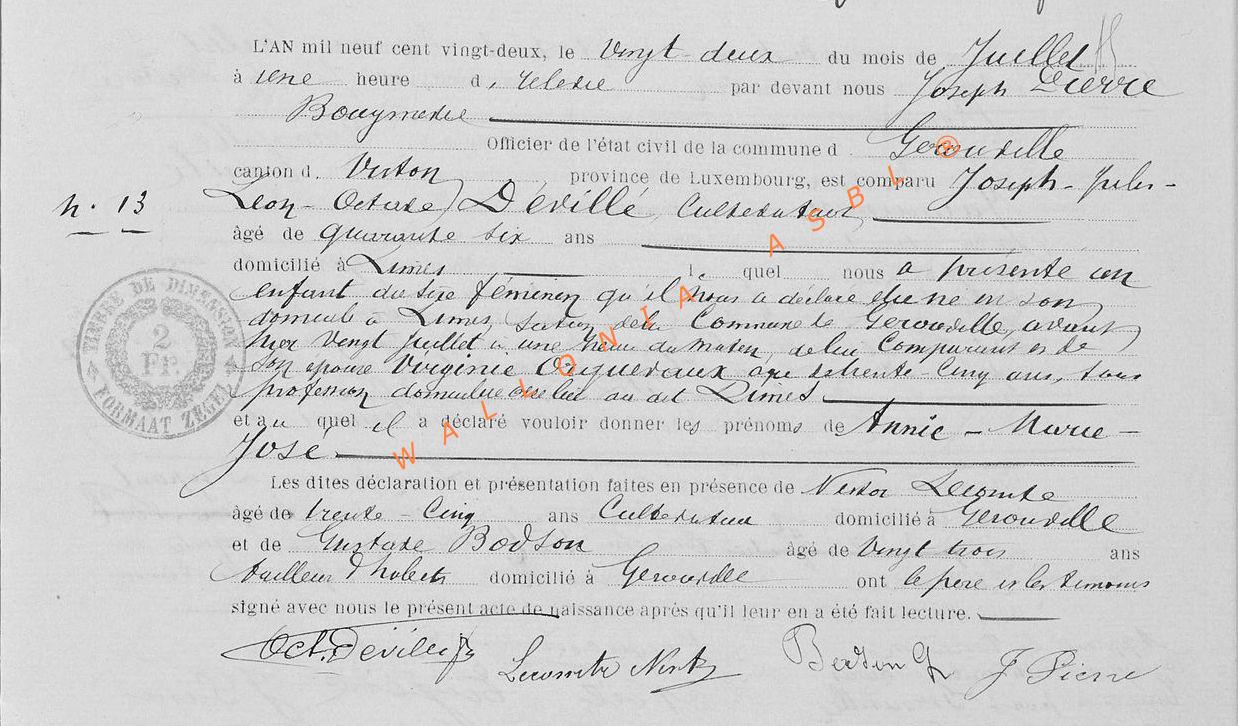 L'AN mil neuf cent vingt-deux, le Vingt-deux du mois de Juillet
à une heure d, relevée par devant nous Joseph Pierre
Bourgmestre
Officier de l'état civil de la commune d Gerouville
canton d. Virton, province de Luxembourg, est comparu Joseph-Jules-
n. 13
Léon-Octave Déville, Cultivateur
âgé de quarante six ans
domicilié à Limes l quel nous a présenté un
enfant du sexe féminin qu'il nous a déclaré être né en son
domicile à Limes, section de la Commune de Gerouville, avant
hier Vingt Juillet à une heure du matin, de lui Comparant et de
son épouse Virginie âgée trente-Cinq ans, sans
profession, domiciliée au dit Limes
et au quel il a déclaré vouloir donner les prénoms de Annie-Marie-
José
Les dites déclaration et présentation faites en présence de Nestor Lecomte
âgé de trente-Cinq ans Cultivateur domicilié à Gerouville
et de Gustave Bodson âgé de Vingt trois ans
tailleur d'habits domicilié à Gerouville ont le père et les témoins
signé avec nous le présent acte de naissance après qu'il leur en a été fait lecture.
Oct. Déville
Lecomte Nestor
G
J Pierre
TIMBRE DE DIMENSION
2
Fr.
FORMAAT ZEGEL
WALLONIA ASBL ®